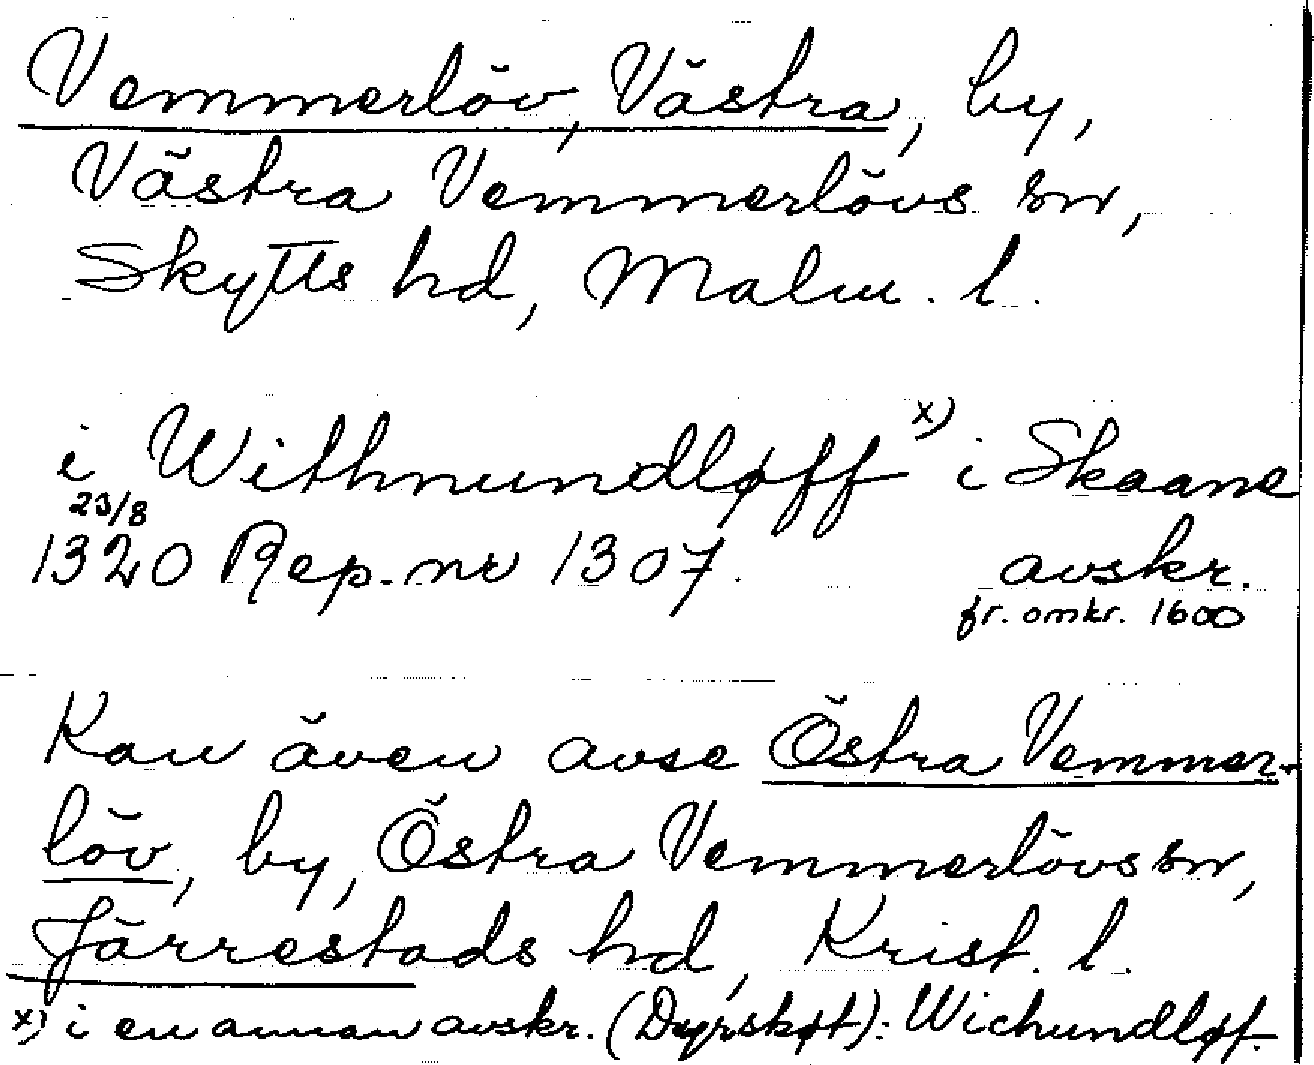 Vemmerlöv, Västra, by,
Västra Vemmerlövs sn,
Skytts hd, Malm. l.
i Withnundløff x) i Skaane
23/8
1320 Rep. nr 1307. avskr.
fr. omkr. 1600
Kan även avse Östra Vemmer-
löv, by, Östra Vemmerlövs sn,
Järrestads hd, Krist. l.
x) i en annan avskr. (Dyrskøt): Wichundløf.